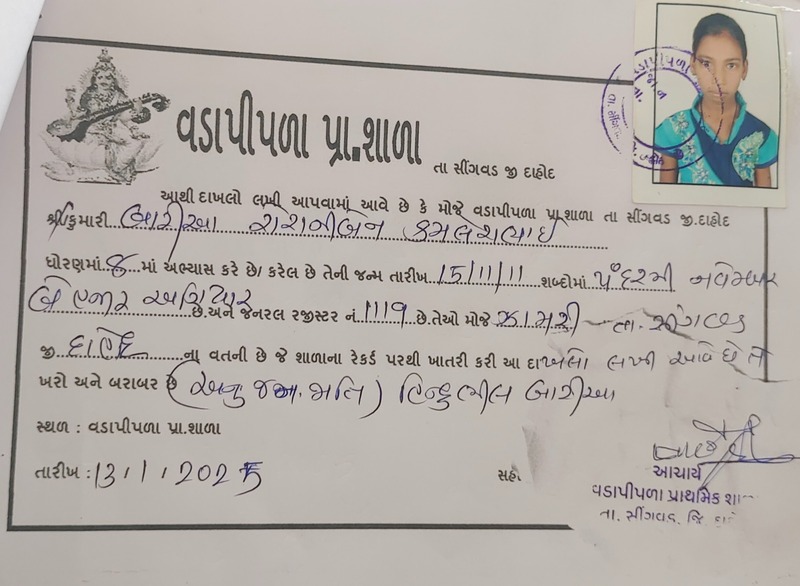 વડાપીપળા પ્રા.શાળા
તા સીંગવડ જી દાહોદ
આથી દાખલો લખી આપવામાં આવે છે કે મોજે વડાપીપળા પ્રા.શાળા તા સીંગવડ જી.દાહોદ
શ્રી/કુમારી બારીઆ રાશનીબેન કમલેશભાઈ
ધોરણમાં ૬ માં અભ્યાસ કરે છે/ કરેલ છે તેની જન્મ તારીખ 15/11/11 શબ્દોમાં પંદરમી નવેમ્બર
બે હજાર અગિયાર છે.અને જનરલ રજીસ્ટર નં 1119 છે.તેઓ મોજે ઝામરી તા. સીંગવડ
જી. દાહોદ ના વતની છે જે શાળાના રેકર્ડ પરથી ખાતરી કરી આ દાખલો લખી આપેલ છે તે
ખરો અને બરાબર છે (અનુ જન.જાતિ) હિન્દુ ભીલ બારીઆ
સ્થળ : વડાપીપળા પ્રા.શાળા
તારીખ : 13/1/2025
સહી
આચાર્ય
વડાપીપળા પ્રાથમિક શા
તા. સીંગવડ. જિ. દા